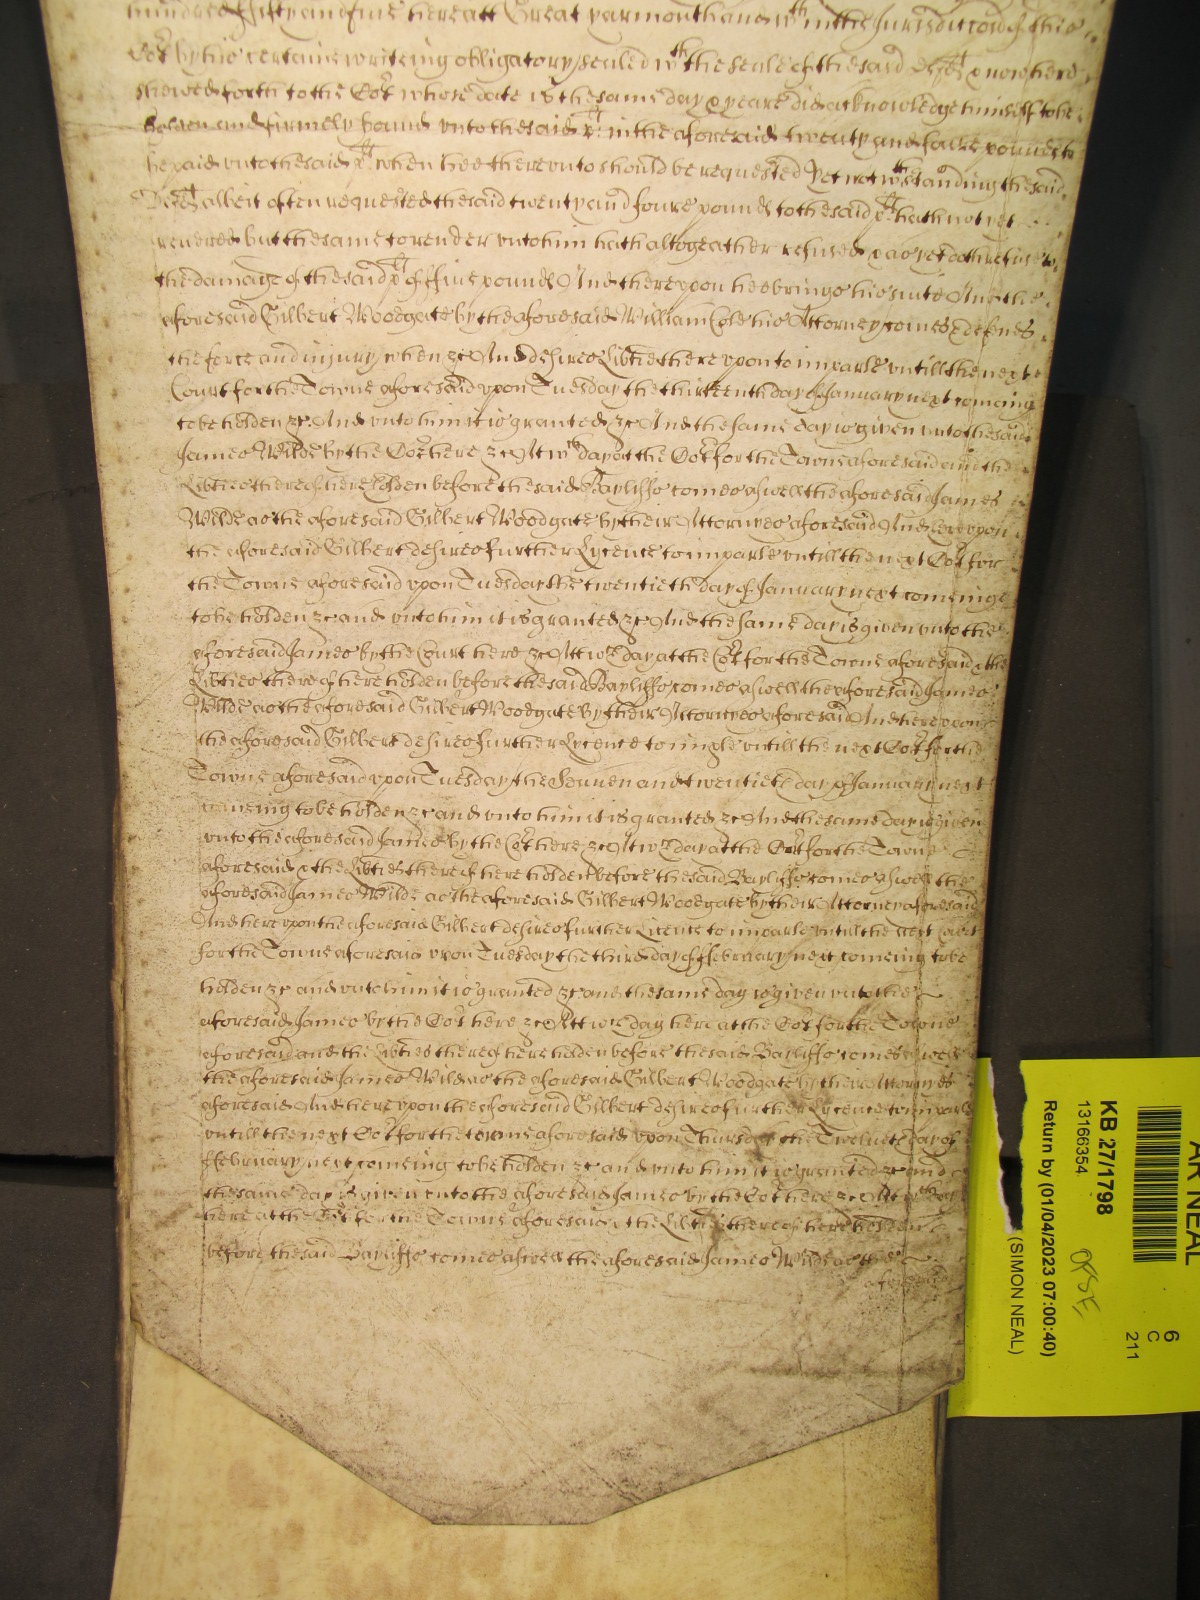 hundred fifty and five here att Great Yarmouth and wth in the Jurisdiccon of this
Cort by his certaine writeing obligatory sealed wth the seale of the said Defendt & now here
shewed forth to the Cort whose date is the same day & yeare did acknowledge himself to be
holden and firmely bound vnto the said plt in the aforesaid twenty and foure pounds to
be paid vnto the said plt when hee therevnto should be requested Yet notwthstanding the said
Defendt albeit often requested the said twenty and foure pounds to the said plt hath not yet
rendred but the same to render vnto him hath altogeather refused & as yet doth refuse to
the damage of the said plt of ffiue pounds And therevpon hee brings his suite And the
aforesaid Gilbert Woodgate by the aforesaid William Cole his Attorney comes & defends
the force and injury when &c And desires Libtie there vpon to imparle vntill the next
Court for the Towne aforesaid vpon Tuesday the thirteenth day of January next comeing
to be holden &c And vnto him it is granted &c And the same day is given vnto the said
James Wilde by the Cort here &c At wch day att the Cort for the Towne aforesaid and the
Libties thereof here holden before the said Bayliffs comes aswell the aforesaid James
Wilde as the aforesaid Gilbert Woodgate by their Attornyes aforesaid And here vpon
the aforesaid Gilbert desires further Lycence to imparle vntill the next Cort for
the Towne aforesaid vpon Tuesday the twentieth day of January next comeinge
to be holden &c and vnto him it is granted &c And the same day is given vnto the
aforesaid James by the Court here &c Att wch day at the Cort for the Towne aforesaid & the
Libties thereof here holden before the said Bayliffs comes aswell the aforesaid James
Wilde as the aforesaid Gilbert Woodgate by their Attornyes aforesaid And here vpon
the aforesaid Gilbert desires further Lycence to imple vntill the next Cort for the
Towne aforesaid vpon Tuesday the Seauen and twentieth day of January next
comeing to be holden &c and vnto him it is granted &c And the same day is given
vnto the aforesaid James by the Cort here &c At wch day at the Cort for the Towne
aforesaid & the Libties thereof here holden before the said Bayliffs comes aswell the
aforesaid James Wilde as the aforesaid Gilbert Woodgate by their Attorneys aforesaid
And here vpon the aforesaid Gilbert desires further Licence to imparle vntill the next Court
for the Towne aforesaid vpon Tuesday the third day of ffebruary next comeing to be
holden &c and vnto him it is granted &c and the same day is given vnto the
aforesaid James by the Cort here &c Att wch day here at the Cort for the Towne
aforesaid and the Libties thereof here holden before the said Bayliffs comes aswell
the aforesaid James Wild as the aforesaid Gilbert Woodgate by there Attornyes
aforesaid And here vpon the aforesaid Gilbert desires further Lycence to imparle
vntill the next Cort for the towne aforesaid vpon Thursday the Twelueth day of
ffebruary next comeing to be holden &c and vnto him it is granted &c and
the same day is given vnto the aforesaid James by the Cort here &c At wch day
here at the Cort for the Towne aforesaid & the Libties thereof here holden
before the said Bayliffs comes aswell the aforesaid James Wilde as the
afores
AR NEAL
6
C
211
KB 27/1798
13166354
Return by (01/04/2023 07:00:40)
(SIMON NEAL)